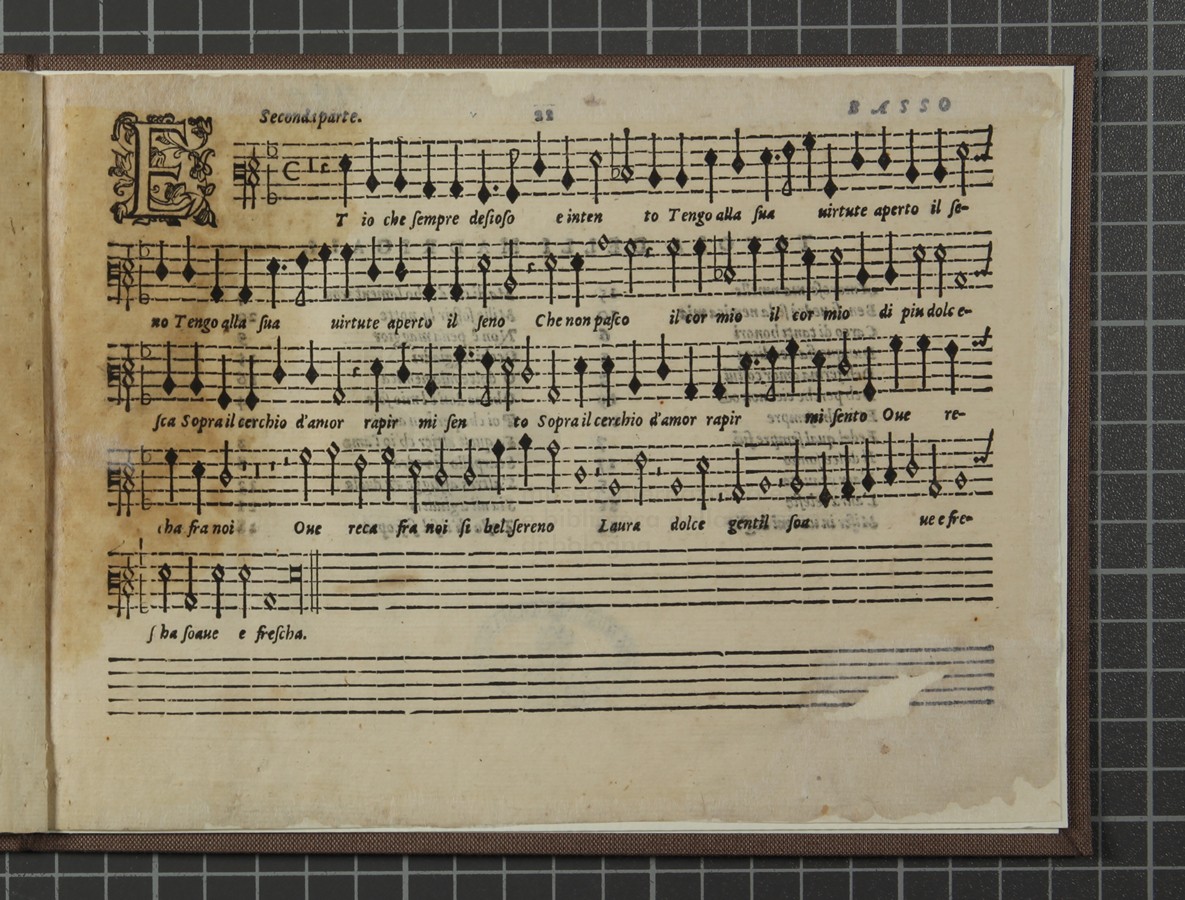 Seconda parte. 22 BASSO
E T io che sempre desioso e inten to Tengo alla sua uirtute aperto il se-
no Tengo alla sua uirtute aperto il seno Che non pasco il cor mio il cor mio di piu dolc e-
sca Sopra il cerchio d'amor rapir mi sen to Sopra il cerchio d'amor rapir mi sento Oue re-
cha fra noi Oue reca fra noi si bel sereno Laura dolce gentil soa ue e fre-
s cha soaue e frescha.